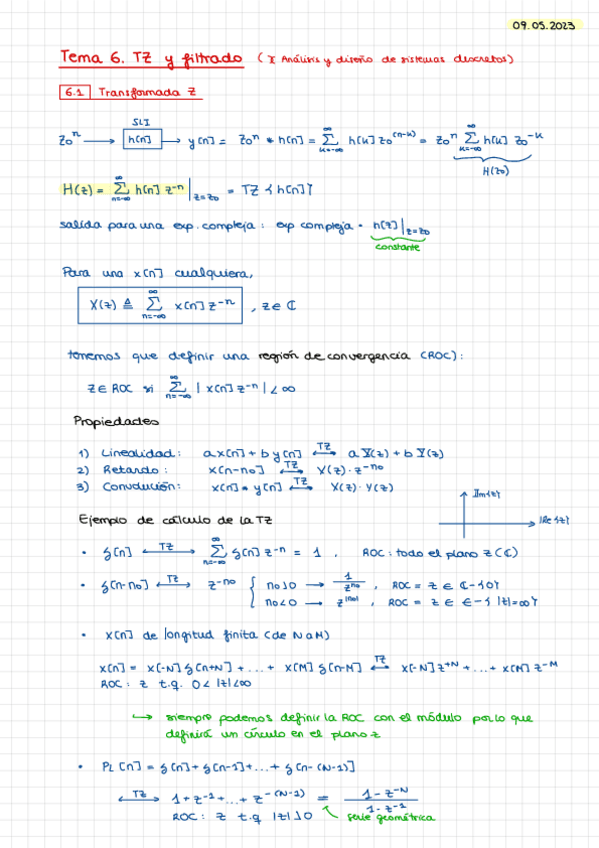 09.05.2023
Tema 6. TZ y filtrado ( χ Análisis y diseño de sistemas discretos)
6.1 Transformada Z
SLI
z₀ⁿ → h[n] → y[n] = z₀ⁿ * h[n] = Σ_{k=-∞}^{∞} h[k] z₀^{(n-k)} = z₀ⁿ Σ_{k=-∞}^{∞} h[k] z₀^{-k}
H(z₀)
H(z) = Σ_{n=-∞}^{∞} h[n] z^{-n} |_{z=z₀} = TZ {h[n]}
salida para una exp. compleja : exp compleja · h(z)|_{z=z₀}
constante
Para una x[n] cualquiera,
X(z) ≜ Σ_{n=-∞}^{∞} x[n] z^{-n} , z ∈ ℂ
tenemos que definir una región de convergencia (ROC) :
z ∈ ROC si Σ_{n=-∞}^{∞} | x[n] z^{-n} | < ∞
Propiedades
1) Linealidad : a x[n] + b y[n] ⟷^{TZ} a X(z) + b Y(z)
2) Retardo : x[n-n₀] ⟷^{TZ} X(z) · z^{-n₀}
3) Convolución : x[n] * y[n] ⟷^{TZ} X(z) · Y(z)
Im{z}
Re{z}
Ejemplo de cálculo de la TZ
• δ[n] ⟷^{TZ} Σ_{n=-∞}^{∞} δ[n] z^{-n} = 1 , ROC : todo el plano z (ℂ)
• δ[n-n₀] ⟷^{TZ} z^{-n₀} { n₀>0 → 1/z^{n₀} , ROC = z ∈ ℂ-{0}
n₀<0 → z^{|n₀|} , ROC = z ∈ ℂ-{|z|=∞}
• x[n] de longitud finita (de N a M)
x[n] = x[-N] δ[n+N] + ... + x[M] δ[n-M] ⟷^{TZ} x[-N] z^{+N} + ... + x[M] z^{-M}
ROC : z t.q. 0 < |z| < ∞
↪ siempre podemos definir la ROC con el módulo por lo que
definirá un círculo en el plano z
• PL[n] = δ[n] + δ[n-1] + ... + δ[n-(N-1)]
⟷^{TZ} 1 + z^{-1} + ... + z^{-(N-1)} = (1 - z^{-N})/(1 - z^{-1})
ROC : z t.q |z|>0 serie geométrica